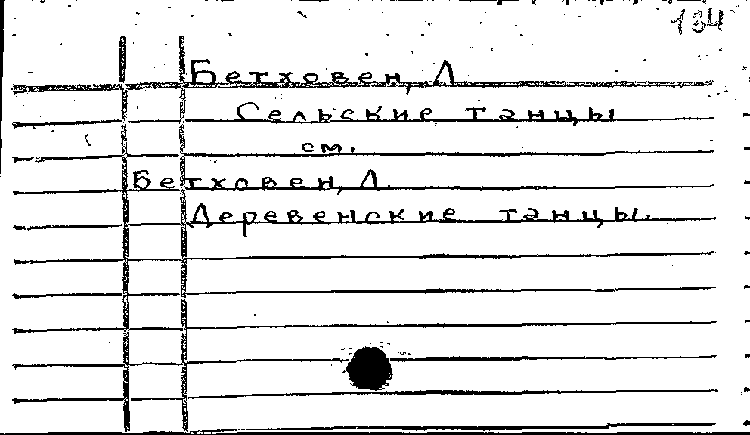 134
Бетховен, Л
Сельские танцы
см.
Бетховен, Л.
Деревенские танцы.